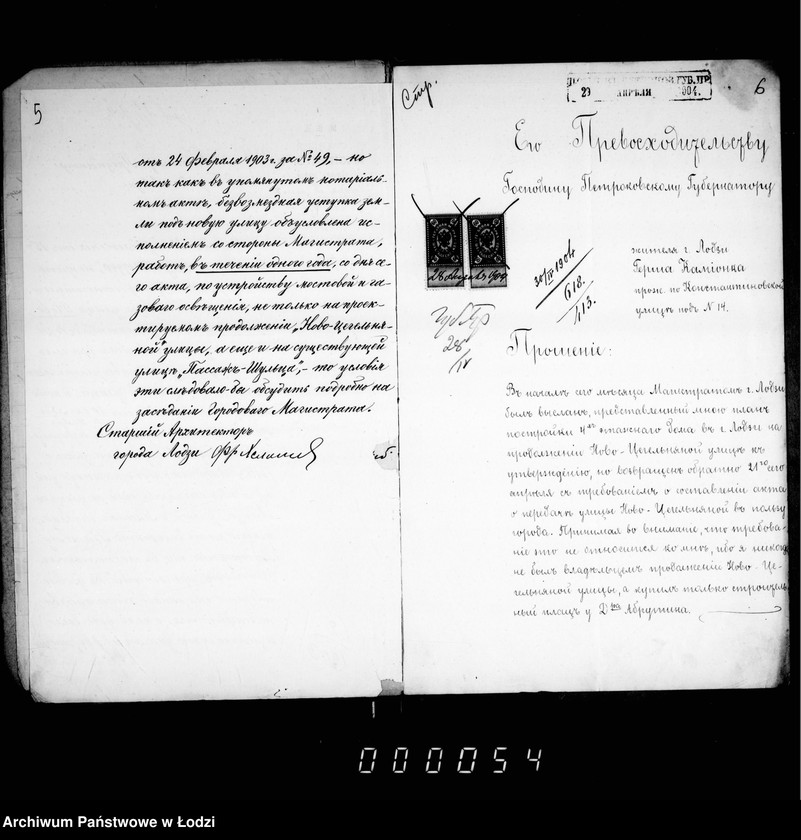 5
отъ 24 Февраля 1903 г. за № 49, – но
такъ какъ въ упомянутомъ нотаріаль-
номъ актѣ, безвозмездная уступка зем-
ли подъ новую улицу обусловлена ис-
полненіемъ со стороны Магистрата,
работъ, въ теченіи одного года, со дня э-
аго акта, по устройству мостовой и га-
зоваго освѣщенія, не только на проек-
тируемомъ продолженіи „Ново-Цегельня-
ной" улицы, а еще и на существующей
улицѣ „Пассажъ-Шульца", – то условія
эти слѣдовало-бы обсудить подробно на
засѣданіи Городоваго Магистрата.
Старшій Архитекторъ
города Лодзи
Стр.
6
29 АПРѢЛЯ 1904.
Его Превосходительству
Господину Петроковскому Губернатору
жителя г. Лодзи
Герша Каліонка
прож. по Константиновской
улицѣ подъ N 14.
28 1904
30/IV 1904
618.
413.
28
IV
Прошеніе:
Въ началѣ сего мѣсяца Магистратомъ г. Лодзи
былъ высланъ, представленный мною планъ
постройки 4хъ этажнаго дома въ г. Лодзи на
проломаніи Ново-Цегельняной улицѣ къ
утвержденію, но возвращенъ обратно 21го сего
апрѣля съ требованіемъ о составленіи акта
о передачѣ улицы Ново-Цегельняной въ пользу
города. Принимая во вниманіе, что требова-
ніе это не относится ко мнѣ, ибо я никогда
не былъ владѣльцемъ проломаніи Ново-Це-
гельняной улицы, а купилъ только строитель-
ный плацъ у Д-ра Абрутина.
000054
Archiwum Państwowe w Łodzi